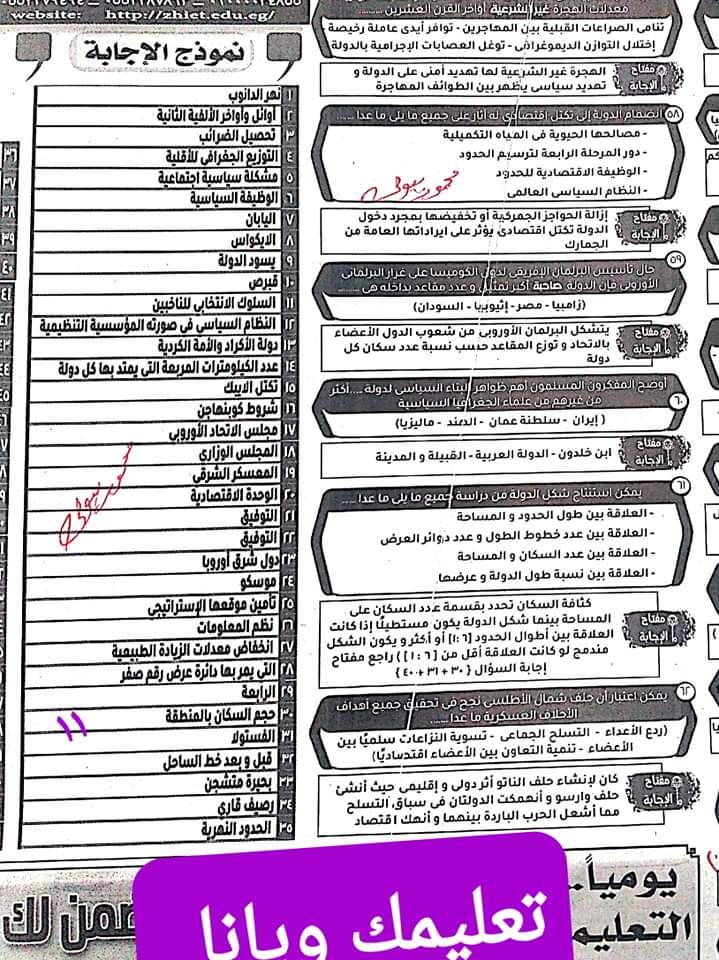 معدلات الهجرة غير الشرعية أواخر القرن العشرين
تنامى الصراعات القبلية بين المهاجرين - توافر أيدى عاملة رخيصة
إختلال التوازن الديموغرافى - توغل العصابات الإجرامية بالدولة
مفتاح الإجابة
الهجرة غير الشرعية لها تهديد أمنى على الدولة و
تهديد سياسى يظهر بين الطوائف المهاجرة
٥٨
انضمام الدولة إلى تكتل إقتصادى له آثار على جميع ما يلى ما عدا ......
- مصالحها الحيوية فى المياه التكميلية
- دور المرحلة الرابعة لترسيم الحدود
- الوظيفة الاقتصادية للحدود
- النظام السياسى العالمى
مفتاح الإجابة
إزالة الحواجز الجمركية أو تخفيضها بمجرد دخول
الدولة تكتل اقتصادى يؤثر على ايراداتها العامة من
الجمارك
٥٩
حال تأسيس البرلمان الإفريقى لدول الكوميسا على غرار البرلمانى
الأوروبى فإن الدولة صاحبة أكبر تمثيل و عدد مقاعد بداخله هى ......
(زامبيا - مصر - إثيوبيا - السودان)
مفتاح الإجابة
يتشكل البرلمان الأوروبى من شعوب الدول الأعضاء
بالاتحاد و توزع المقاعد حسب نسبة عدد سكان كل
دولة
٦٠
أوضح المفكرون المسلمون أهم ظواهر البناء السياسى لدولة .... أكثر
من غيرهم من علماء الجغرافيا السياسية
( إيران - سلطنة عمان - الهند - ماليزيا)
مفتاح الإجابة
ابن خلدون - الدولة العربية - القبيلة و المدينة
٦١
يمكن استنتاج شكل الدولة من دراسة جميع ما يلى ما عدا ......
- العلاقة بين طول الحدود و المساحة
- العلاقة بين عدد خطوط الطول و عدد دوائر العرض
- العلاقة بين عدد السكان و المساحة
- العلاقة بين نسبة طول الدولة و عرضها
مفتاح الإجابة
كثافة السكان تحدد بقسمة عدد السكان على
المساحة بينما شكل الدولة يكون مستطيلًا إذا كانت
العلاقة بين أطوال الحدود [١:٦] أو أكثر و يكون الشكل
مندمج لو كانت العلاقة أقل من [ ٦ : ١ ] ) راجع مفتاح
إجابة السؤال ( ٣٠ + ٣١ + ٤٠ )
٦٢
يمكن اعتبار أن حلف شمال الأطلسى نجح فى تحقيق جميع أهداف
الأحلاف العسكرية ما عدا ......
(ردع الأعداء - التسلح الجماعى - تسوية النزاعات سلميًا بين
الأعضاء - تنمية التعاون بين الأعضاء اقتصاديًا)
مفتاح الإجابة
كان لإنشاء حلف الناتو أثر دولى و إقليمى حيث أنشئ
حلف وارسو و أنهمكت الدولتان فى سباق التسلح
مما أشعل الحرب الباردة بينهما و أنهك اقتصاد
website: http://zhiet.edu.eg/
نموذج الإجابة
١ نهر الدانوب
٢ أوائل وأواخر الألفية الثانية
٣ تحصيل الضرائب
٤ التوزيع الجغرافى للأقلية
٥ مشكلة سياسية إجتماعية
٦ الوظيفة السياسية
٧ اليابان
٨ الايكواس
٩ يسود الدولة
١٠ قبرص
١١ السلوك الانتخابى للناخبين
١٢ النظام السياسى فى صورته المؤسسية التنظيمية
١٣ دولة الأكراد والأمة الكردية
١٤ عدد الكيلومترات المربعة التى يمتد بها كل دولة
١٥ تكتل الايبك
١٦ شروط كوبنهاجن
١٧ مجلس الاتحاد الأوروبى
١٨ المجلس الوزارى
١٩ المعسكر الشرقى
٢٠ الوحدة الاقتصادية
٢١ التوفيق
٢٢ التوفيق
٢٣ دول شرق أوروبا
٢٤ موسكو
٢٥ تأمين موقعها الإستراتيجى
٢٦ نظم المعلومات
٢٧ انخفاض معدلات الزيادة الطبيعية
٢٨ التى يمر بها دائرة عرض رقم صفر
٢٩ الرابعة
٣٠ حجم السكان بالمنطقة
٣١ الفستولا
٣٢ قبل و بعد خط الساحل
٣٣ بحيرة متشجن
٣٤ رصيف قاري
٣٥ الحدود النهرية
١١
يومياً..
التعليم
تعليمك ويانا